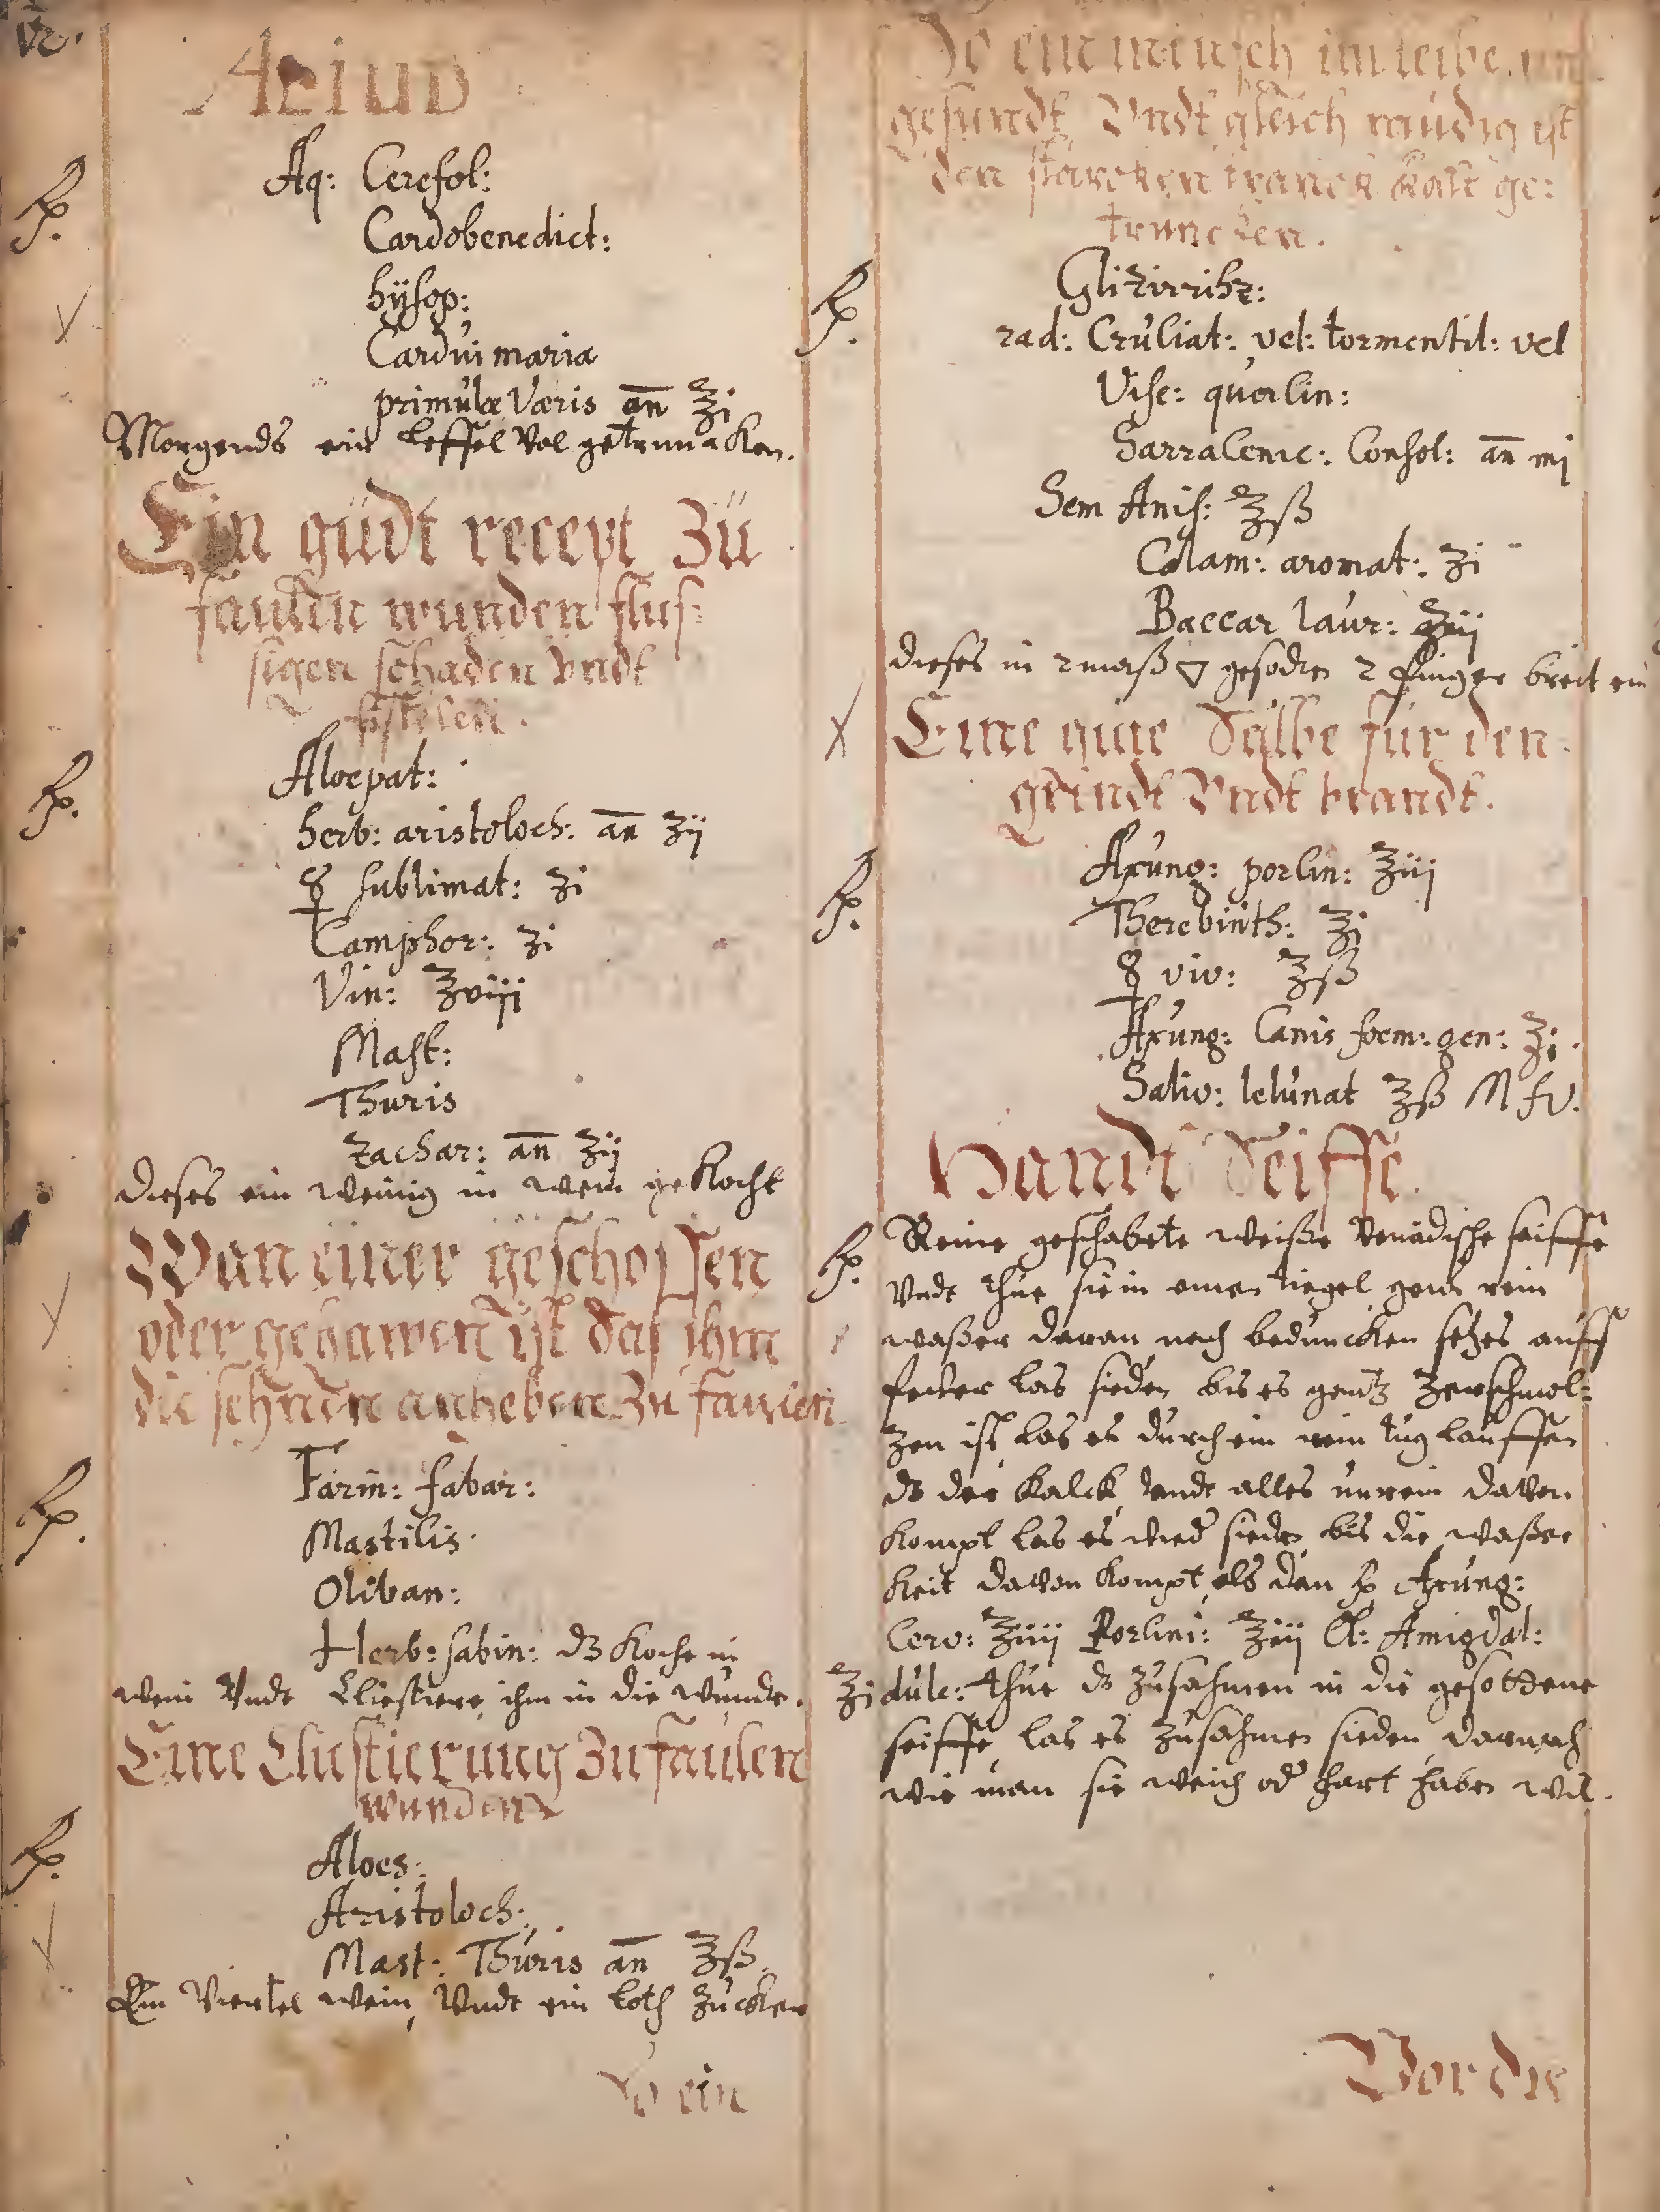 Aliud
℞. Aq: Cerefol:
Cardobenedict:
hÿsop:
Cardui maria
primulæ Væris an̄ ℥j
Morgends ein Leffel Vol getrunncken.
Ein gudt recept Zu
faulen wunden flus:
sigen schaden Vndt
fistelen.
℞. Aloepat:
herb: aristoloch: an̄ ʒij
☿ sublimat: ʒi
Camphor: ʒi
Vin: ℥viij
Mast:
Thuris
zachar: an̄ ʒij
dieses ein wenig in wein gekocht
Wan einer geschossen
oder gehawen ist das ihm
die sehnden anheben Zu faulen
℞. Farin: fabar:
Masticis.
Oliban:
Herb: sabin: dz koche in
wein Vndt Cliestiere ihm in die wunde.
Eine Cliestierung Zu faulen
wunden
℞. Aloes:
Aristoloch:
Mast: Thuris an̄ ℥ß.
Ein Viertel wein, Vndt ein loth Zucker
So ein
So ein minsch im leibe un
gesundt Vndt gleich reudig ist
den starcken tranck kalt ge:
truncken.
℞. Glizirrihz:
rad: Cruciat: vel: tormentil: vel
Vise: quercin:
Sarracenic: Consol: an̄ mj
Sem Anis: ℥ß
Calam: aromat: ʒi
Baccar laur: ʒiij
dieses in 2 maß ▽ gesodten 2 finger breit ein
Eine gute Salbe fur den
grindt Vndt brandt.
℞. Axung: porcin: ℥iij
Therebinth: ℥j
☿ viv: ℥ß
Axung: Canis foem: gen: ℥j.
Saliv: Ieiunat ℥ß M fv.
Handt Seiffe.
℞. Reine geschabete weisse Venedische seiffe
Vndt thue sie in einen tiegel geus rein
wasser daran nach beduncken setzes auff
fewer las sieden bis es gentz Zerschmol:
zen ist, las es durch ein rein tug lauffen
dz der kalck Vndt alles unrein davon
kompt las es wied sieden bis die wasser
keit davon kompt als dan ℞ Axung:
Cerv: ℥iiij Porcini: ℥iij Ol: Amigdal:
℥i dulc: thue dz zusahmen in die gesottene
seiffe, las es zusahmen sieden, darnach
wie man sie weich od hart haben wil.
Vor die